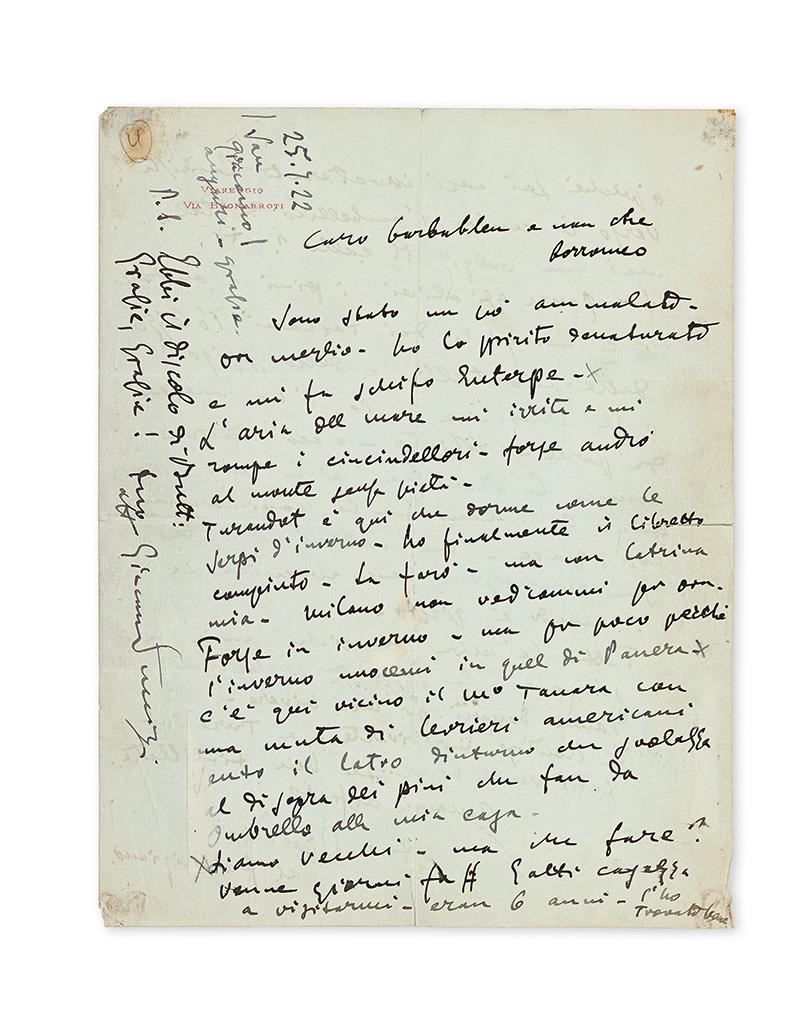 5
25.7.22
VIAREGGIO
VIA BUONARROTI
! San
giacomo!
auguri - grazie.
Caro Barbableu e non che
Borromeo
Sono stato un pò ammalato -
or meglio - ho lo spirito denaturato
e mi fa schifo Euterpe - x
L'aria del mare mi irrita e mi
rompe i cincindellori - forse andrò
al monte senza pietà -
Turandot è qui che dorme come le
serpi d'inverno - ho finalmente il libretto
compiuto - La farò - ma con latrina
mia - Milano non vedrammi per ora -
Forse in inverno - ma per poco perchè
l'inverno nuocemi in quel di Panera - x
c'è qui vicino il Mo Tanara con
una muta di levrieri americani
sento il latro dintorno che svolazza
al disopra dei pini che fan da
ombrello alla mia casa -
x siamo vecchi - ma che fare?
venne giorni fa Gatti casazza
a visitarmi - eran 6 anni - l'ho
trovato bene
P.S. Ebbi il discolo di
Grazie, Grazie! tuo
aff Giacomo Puccini